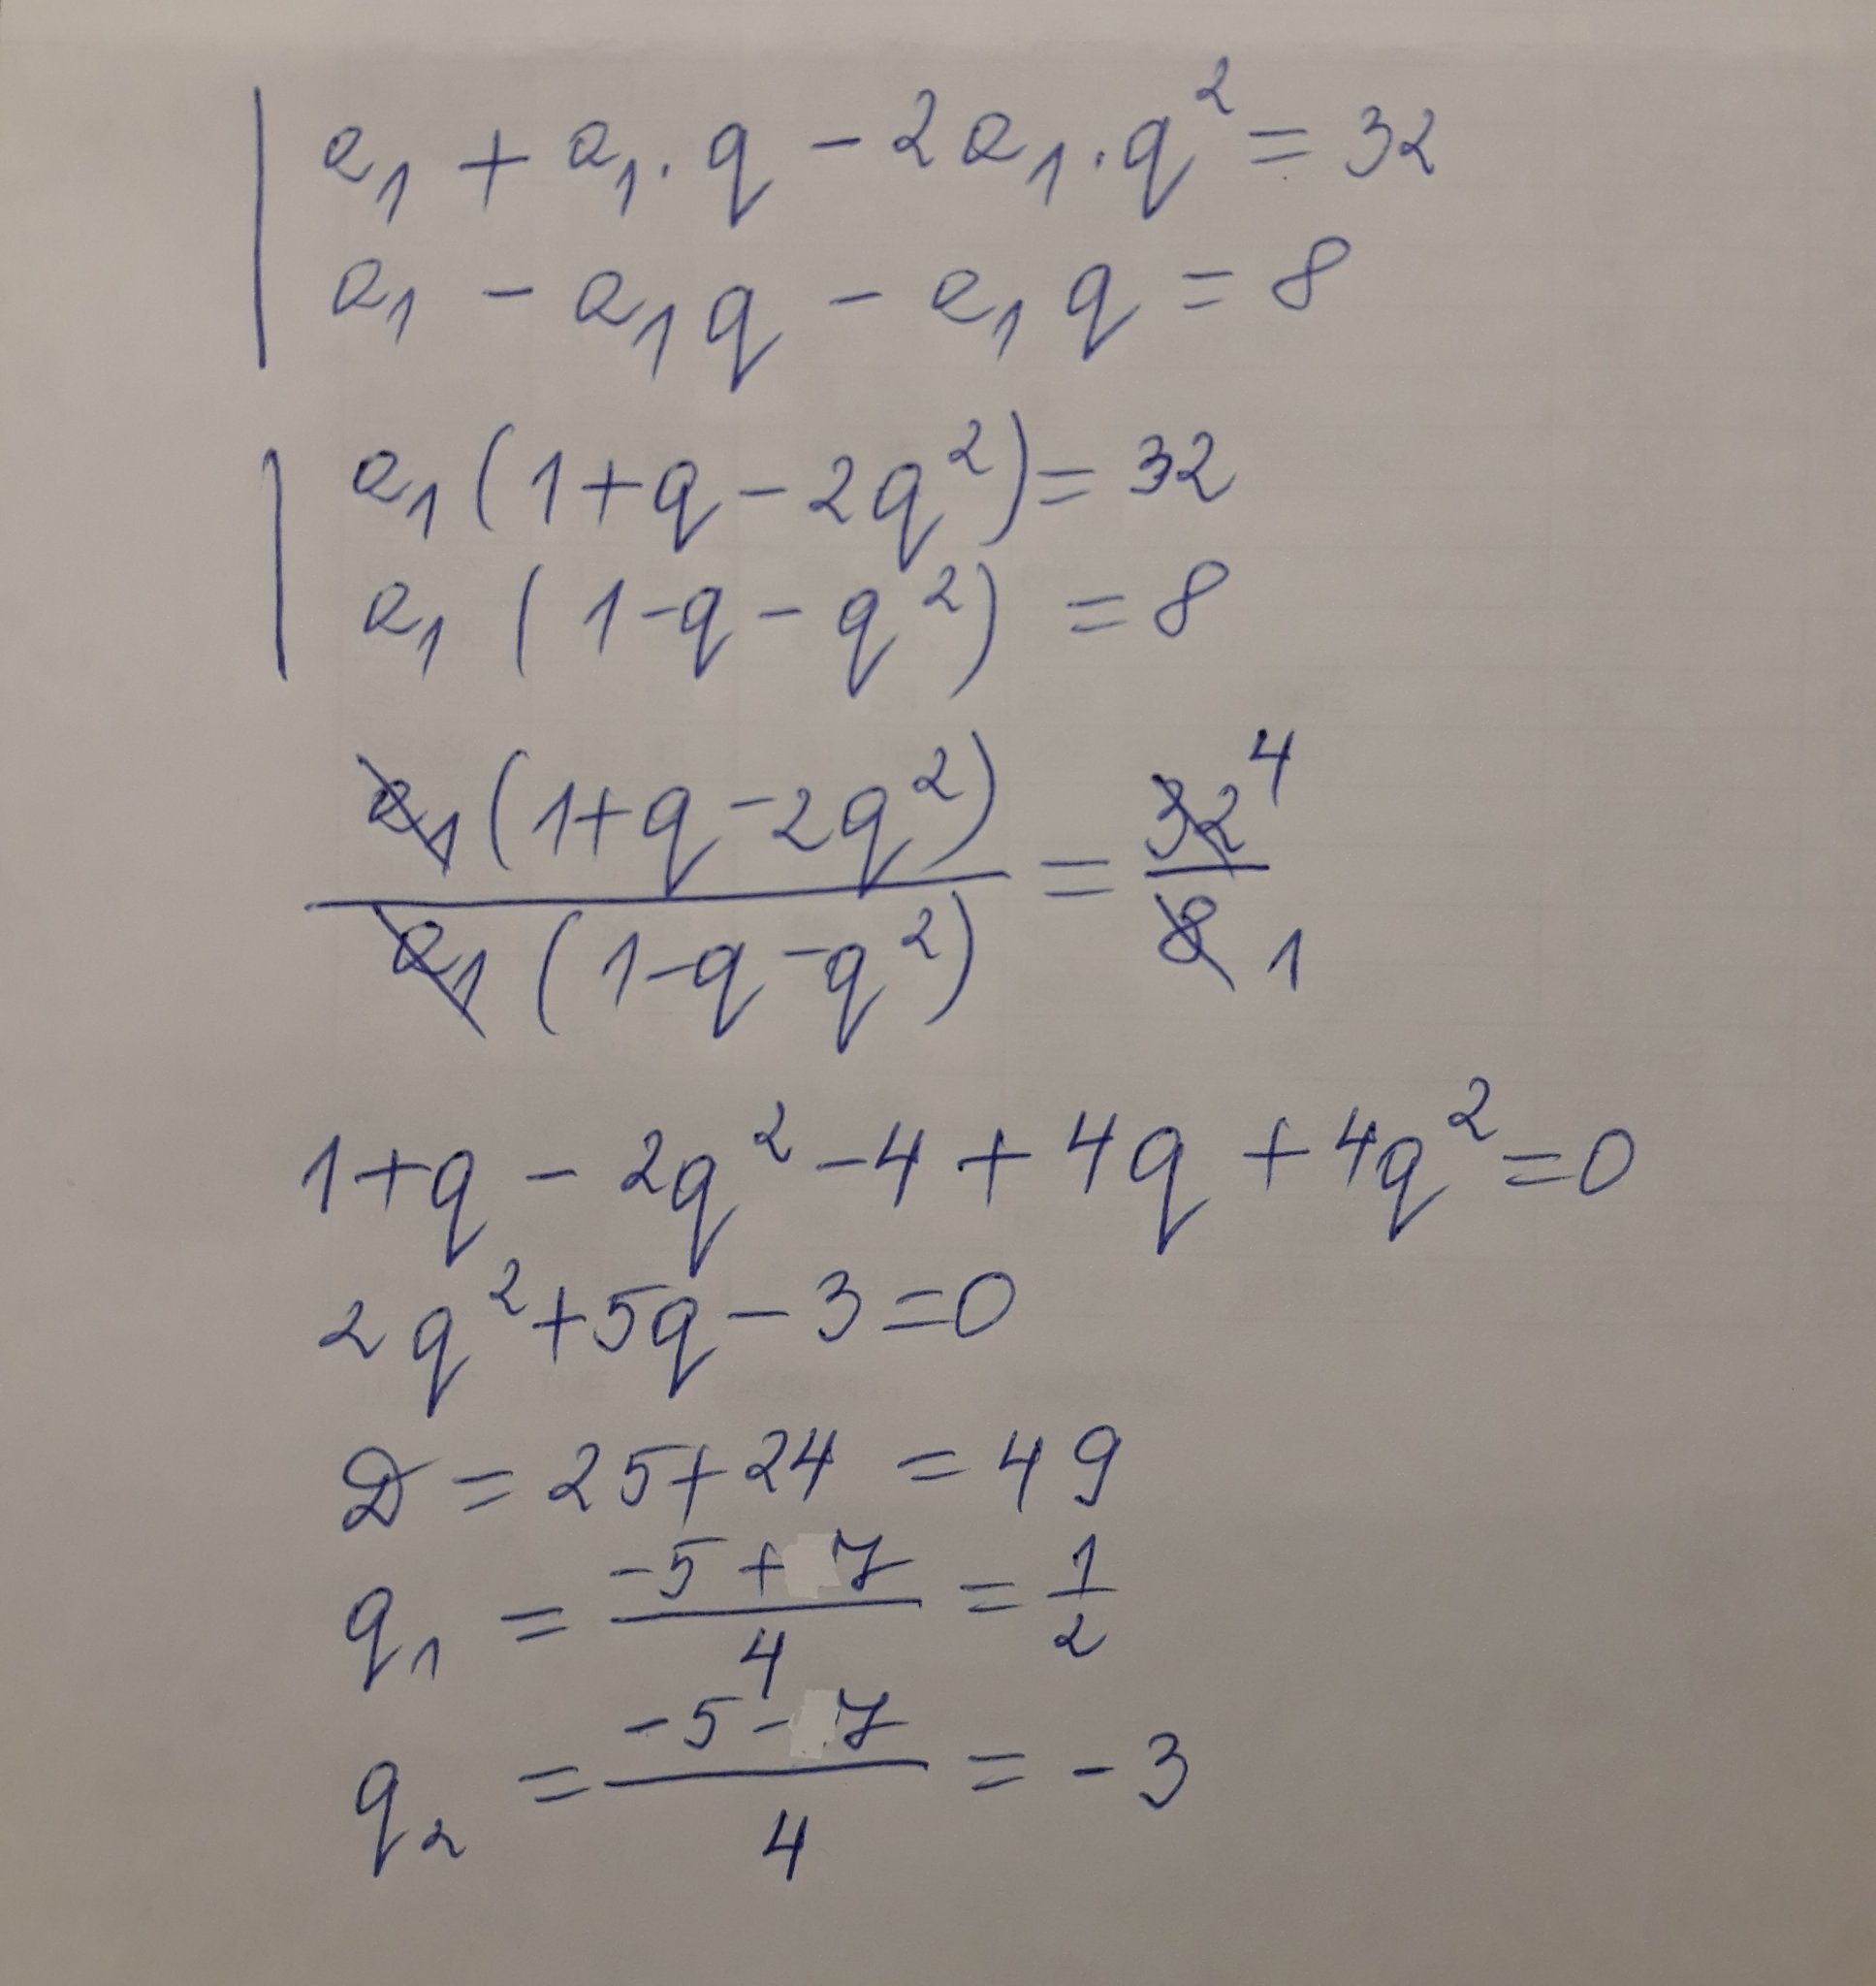 a₁ + a₁ · q − 2a₁ · q² = 32
a₁ − a₁q − a₁q = 8
a₁(1+q−2q²) = 32
a₁(1−q−q²) = 8
a₁(1+q−2q²) / a₁(1−q−q²) = 32 4 / 8 1
1+q − 2q² − 4 + 4q + 4q² = 0
2q² + 5q − 3 = 0
D = 25 + 24 = 49
q₁ = (−5 + 7) / 4 = 1/2
q₂ = (−5 − 7) / 4 = −3